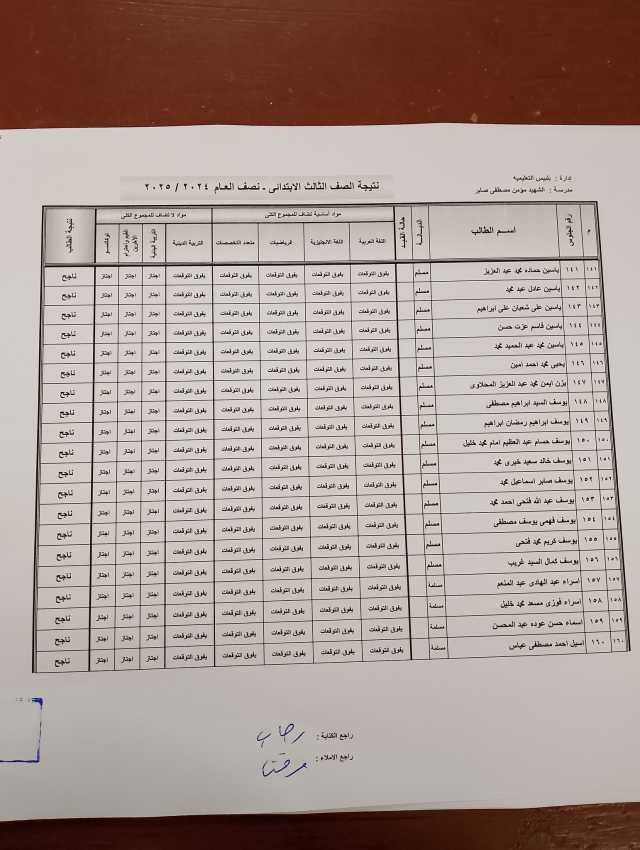 إدارة : بلبيس التعليمية
مدرسة : الشهيد مؤمن مصطفى صابر
نتيجة الصف الثالث الابتدائى ـ نصف العام ٢٠٢٤ / ٢٠٢٥
م رقم الجلوس اسم الطالب الديانة حالة القيد مواد أساسية تضاف للمجموع الكلى مواد لا تضاف للمجموع الكلى نتيجة الطالب
اللغة العربية اللغة الانجليزية رياضيات متعدد التخصصات التربية الدينية التربية البدنية القيم واحترام الآخرين توكاتسو
١٤١ ١٤١ ياسين حماده محمد عبد العزيز مسلم يفوق التوقعات يفوق التوقعات يفوق التوقعات يفوق التوقعات يفوق التوقعات اجتاز اجتاز اجتاز ناجح
١٤٢ ١٤٢ ياسين عادل عبد محمد مسلم يفوق التوقعات يفوق التوقعات يفوق التوقعات يفوق التوقعات يفوق التوقعات اجتاز اجتاز اجتاز ناجح
١٤٣ ١٤٣ ياسين على شعبان على ابراهيم مسلم يفوق التوقعات يفوق التوقعات يفوق التوقعات يفوق التوقعات يفوق التوقعات اجتاز اجتاز اجتاز ناجح
١٤٤ ١٤٤ ياسين قاسم عزت حسن مسلم يفوق التوقعات يفوق التوقعات يفوق التوقعات يفوق التوقعات يفوق التوقعات اجتاز اجتاز اجتاز ناجح
١٤٥ ١٤٥ ياسين محمد عبد الحميد محمد مسلم يفوق التوقعات يفوق التوقعات يفوق التوقعات يفوق التوقعات يفوق التوقعات اجتاز اجتاز اجتاز ناجح
١٤٦ ١٤٦ يحيى محمد احمد امين مسلم يفوق التوقعات يفوق التوقعات يفوق التوقعات يفوق التوقعات يفوق التوقعات اجتاز اجتاز اجتاز ناجح
١٤٧ ١٤٧ يزن ايمن محمد عبد العزيز المحلاوى مسلم يفوق التوقعات يفوق التوقعات يفوق التوقعات يفوق التوقعات يفوق التوقعات اجتاز اجتاز اجتاز ناجح
١٤٨ ١٤٨ يوسف السيد ابراهيم مصطفى مسلم يفوق التوقعات يفوق التوقعات يفوق التوقعات يفوق التوقعات يفوق التوقعات اجتاز اجتاز اجتاز ناجح
١٤٩ ١٤٩ يوسف ابراهيم رمضان ابراهيم مسلم يفوق التوقعات يفوق التوقعات يفوق التوقعات يفوق التوقعات يفوق التوقعات اجتاز اجتاز اجتاز ناجح
١٥٠ ١٥٠ يوسف حسام عبد العظيم امام محمد خليل مسلم يفوق التوقعات يفوق التوقعات يفوق التوقعات يفوق التوقعات يفوق التوقعات اجتاز اجتاز اجتاز ناجح
١٥١ ١٥١ يوسف خالد سعيد خيرى محمد مسلم يفوق التوقعات يفوق التوقعات يفوق التوقعات يفوق التوقعات يفوق التوقعات اجتاز اجتاز اجتاز ناجح
١٥٢ ١٥٢ يوسف صابر اسماعيل محمد مسلم يفوق التوقعات يفوق التوقعات يفوق التوقعات يفوق التوقعات يفوق التوقعات اجتاز اجتاز اجتاز ناجح
١٥٣ ١٥٣ يوسف عبد الله فتحى احمد محمد مسلم يفوق التوقعات يفوق التوقعات يفوق التوقعات يفوق التوقعات يفوق التوقعات اجتاز اجتاز اجتاز ناجح
١٥٤ ١٥٤ يوسف فهمى يوسف مصطفى مسلم يفوق التوقعات يفوق التوقعات يفوق التوقعات يفوق التوقعات يفوق التوقعات اجتاز اجتاز اجتاز ناجح
١٥٥ ١٥٥ يوسف كريم محمد فتحى مسلم يفوق التوقعات يفوق التوقعات يفوق التوقعات يفوق التوقعات يفوق التوقعات اجتاز اجتاز اجتاز ناجح
١٥٦ ١٥٦ يوسف كمال السيد غريب مسلم يفوق التوقعات يفوق التوقعات يفوق التوقعات يفوق التوقعات يفوق التوقعات اجتاز اجتاز اجتاز ناجح
١٥٧ ١٥٧ اسراء عبد الهادى عبد المنعم مسلمة يفوق التوقعات يفوق التوقعات يفوق التوقعات يفوق التوقعات يفوق التوقعات اجتاز اجتاز اجتاز ناجح
١٥٨ ١٥٨ اسراء فوزى مسعد محمد خليل مسلمة يفوق التوقعات يفوق التوقعات يفوق التوقعات يفوق التوقعات يفوق التوقعات اجتاز اجتاز اجتاز ناجح
١٥٩ ١٥٩ اسماء حسن عوده عبد المحسن مسلمة يفوق التوقعات يفوق التوقعات يفوق التوقعات يفوق التوقعات يفوق التوقعات اجتاز اجتاز اجتاز ناجح
١٦٠ ١٦٠ اسيل احمد مصطفى عباس مسلمة يفوق التوقعات يفوق التوقعات يفوق التوقعات يفوق التوقعات يفوق التوقعات اجتاز اجتاز اجتاز ناجح
راجع الكتابة : رحاب
راجع الاملاء :